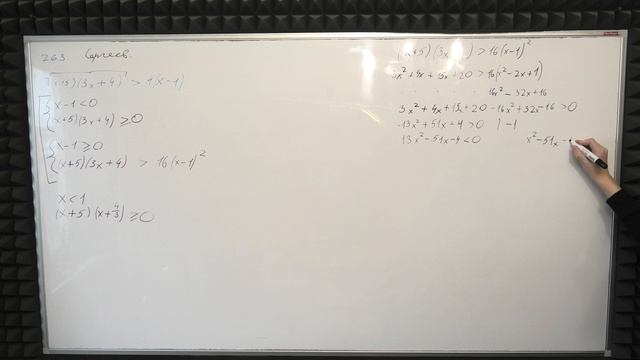 263. Сергеев.
√(x+5)(3x+4) > 4(x-1)
x-1<0
(x+5)(3x+4) ⩾0
x-1 ⩾0
(x+5)(3x+4) > 16(x-1)²
x<1
(x+5)(x+4/3) ⩾0
(x+5)(3x ) > 16(x-1)²
3x²+4x+15x+20 > 16(x²-2x+1)
16x²-32x+16
3x²+4x+15x+20-16x²+32x-16>0
-13x²+51x+4>0 |-1
13x²-51x-4<0
x²-51x-